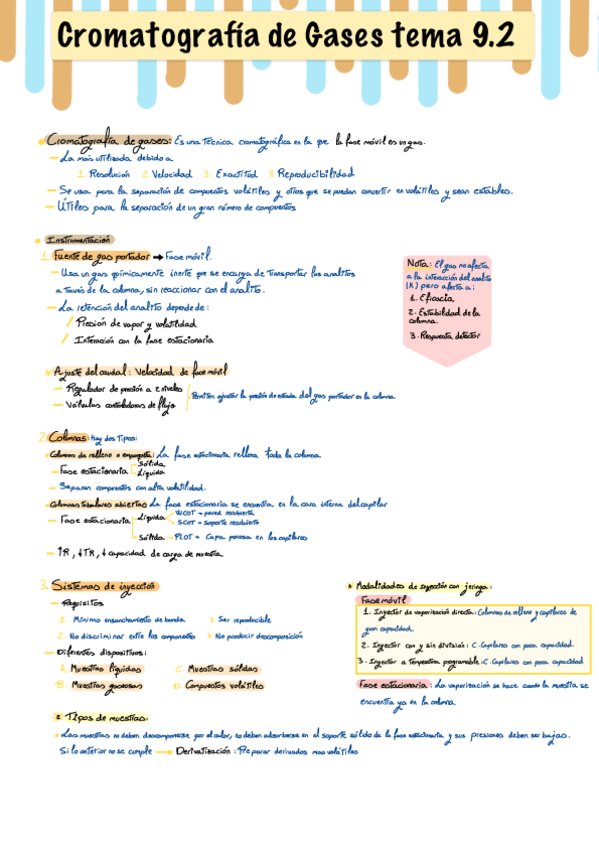 Cromatografía de Gases tema 9.2
Cromatografía de gases: Es una técnica cromatográfica en la que la fase móvil es un gas.
— La más utilizada debido a
1. Resolución 2. Velocidad 3. Exactitud 4. Reproducibilidad
— Se usa para la separación de compuestos volátiles y otros que se puedan convertir en volátiles y sean estables.
— Útiles para la separación de un gran número de compuestos
Instrumentación
1. Fuente de gas portador → Fase móvil.
— Usa un gas químicamente inerte que se encarga de transportar los analitos
a través de la columna, sin reaccionar con el analito.
— La retención del analito depende de:
/ Presión de vapor y volatilidad
/ Interacción con la fase estacionaria
Nota: El gas no afecta
a la interacción del analito
(K) pero afecta a:
1. Eficacia
2. Estabilidad de la
columna.
3. Respuesta detector
Ajuste del caudal: Velocidad de fase móvil
— Regulador de presión a 2 niveles
— Válvulas controladoras de flujo
Permiten ajustar la presión de entrada del gas portador en la columna
2. Columnas: Hay dos tipos:
Columnas de relleno o empaquetada: La fase estacionaria rellena toda la columna
— Fase estacionaria
Sólida
Líquida
— Separan compuestos con alta volatilidad.
Columnas tubulares abiertas: La fase estacionaria se encuentra en la cara interna del capilar
— Fase estacionaria
Líquida
WCOT = pared recubierta
SCOT = soporte recubierto
Sólida — PLOT = Capa porosa en los capilares
— ↑R, ↓tR, ↓ capacidad de carga de muestra
3. Sistemas de inyección
— Requisitos
1. Mínimo ensanchamiento de banda 3. Ser reproducible
2. No discriminar entre los componentes 4. No producir descomposición
— Diferentes dispositivos:
A. Muestras líquidas C. Muestras sólidas
B. Muestras gaseosas D. Compuestos volátiles
Modalidades de inyección con jeringa:
Fase móvil
1. Inyector de vaporización directa: Columnas de relleno y capilares de
gran capacidad.
2. Inyector con y sin división: C. Capilares con poca capacidad.
3. Inyector a temperatura programable: C. Capilares con poca capacidad
Fase estacionaria: La vaporización se hace cuando la muestra se
encuentra ya en la columna.
Tipos de muestras:
Las muestras no deben descomponerse por el calor, no deben adsorberse en el soporte sólido de la fase estacionaria y sus presiones deben ser bajas.
Si lo anterior no se cumple → Derivatización: Preparar derivados mas volátiles